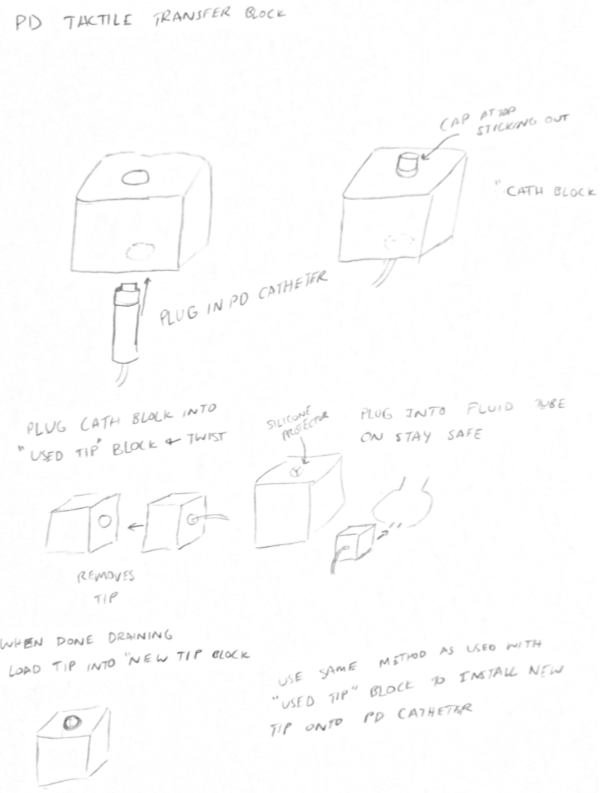 PD TACTILE TRANSFER BLOCK
CAP AT TOP
STICKING OUT
"CATH BLOCK
PLUG IN PD CATHETER
PLUG CATH BLOCK INTO
"USED TIP" BLOCK & TWIST
SILICONE
PROTECTOR
PLUG INTO FLUID TUBE
ON STAY SAFE
REMOVES
TIP
WHEN DONE DRAINING
LOAD TIP INTO "NEW TIP BLOCK
USE SAME METHOD AS USED WITH
"USED TIP" BLOCK TO INSTALL NEW
TIP ONTO PD CATHETER